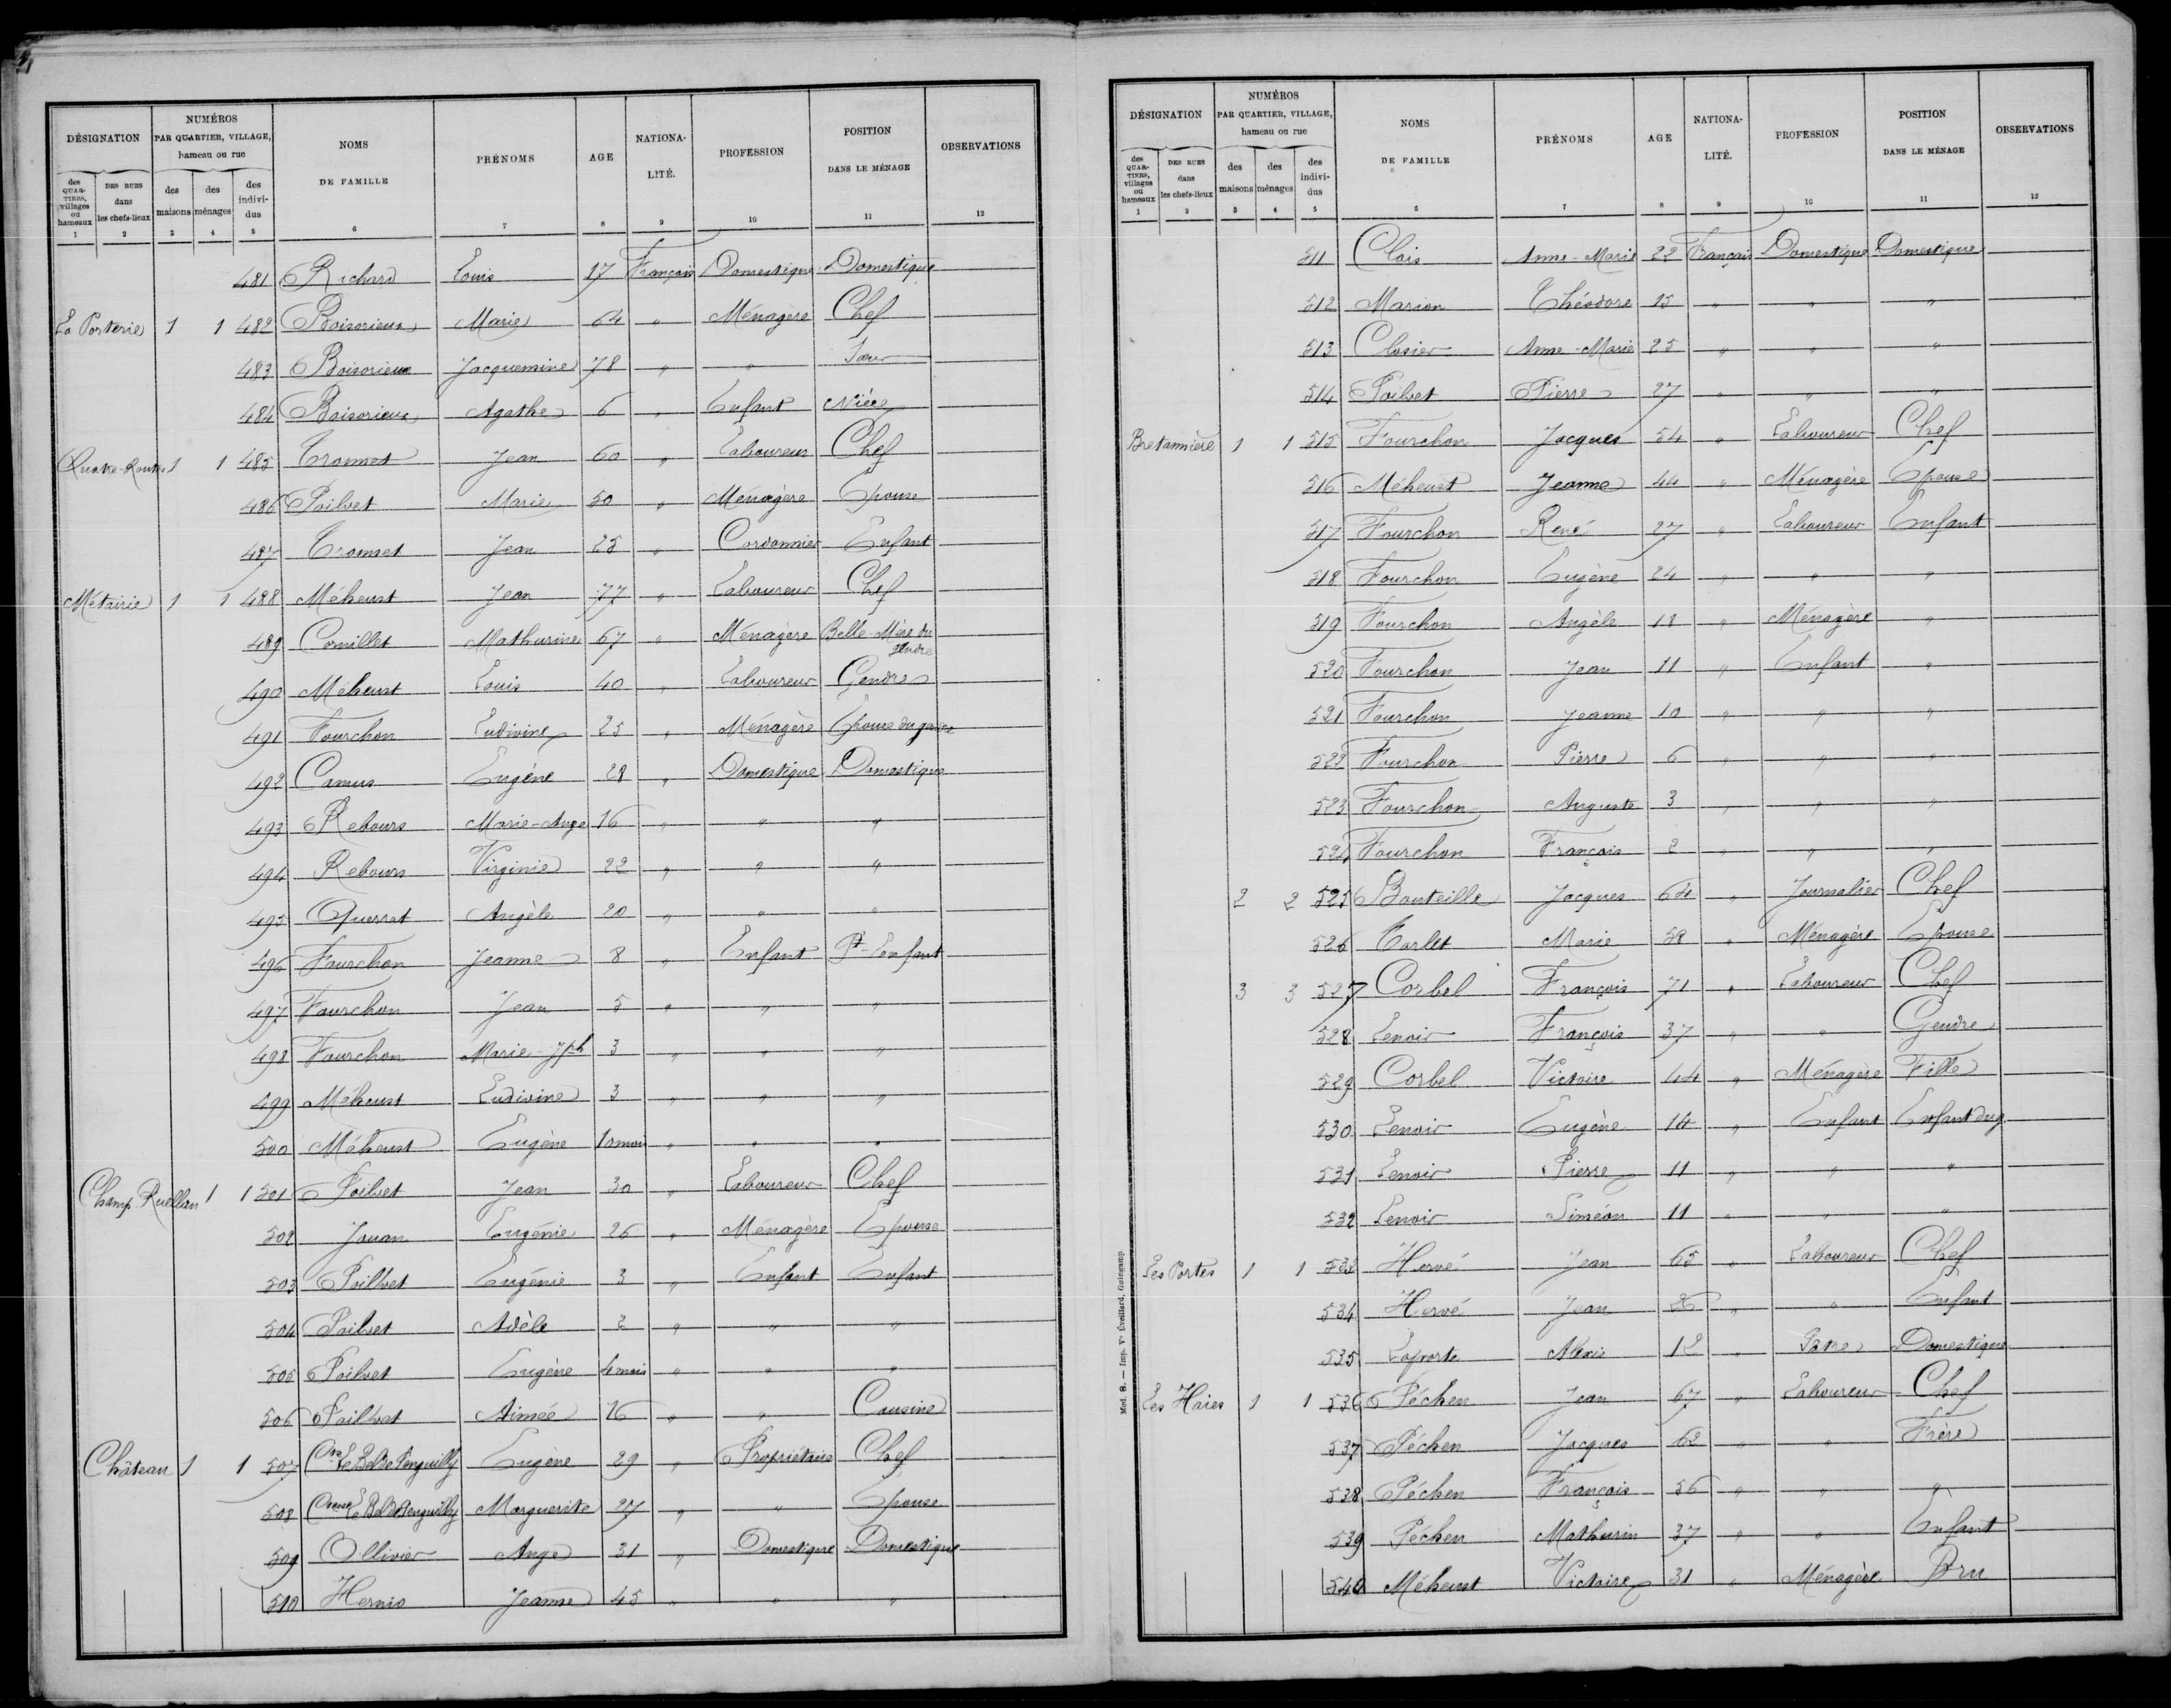 DÉSIGNATION NUMÉROS PAR QUARTIER, VILLAGE, hameau ou rue NOMS DE FAMILLE PRÉNOMS AGE NATIONALITÉ. PROFESSION POSITION DANS LE MÉNAGE OBSERVATIONS
des QUARTIERS, villages ou hameaux DES RUES dans les chefs-lieux des maisons des ménages des individus
1 2 3 4 5 6 7 8 9 10 11 12
481 Richard Louis 17 Français Domestique Domestique
La Porterie 1 1 482 Boisorieux Marie 64 " Ménagère Chef
483 Boisorieux Jacquemine 78 " " Sœur
484 Boisorieux Agathe 6 " Enfant Nièce
Quatre-Routes 1 1 485 Tromet Jean 60 " Laboureur Chef
486 Poilvet Marie 50 " Ménagère Epouse
487 Tromet Jean 25 " Cordonnier Enfant
Métairie 1 1 488 Méheust Jean 77 " Laboureur Chef
489 Cornillet Mathurine 67 " Ménagère Belle-Mère du gendre
490 Méheust Louis 40 " Laboureur Gendre
491 Fourchon Ludivine 25 " Ménagère Epouse du gendre
492 Camus Eugène 28 " Domestique Domestique
493 Rebours Marie-Ange 16 " " "
494 Rebours Virginie 22 " " "
495 Querrat Angèle 20 " " "
496 Fourchon Jeanne 8 " Enfant Pt-Enfant
497 Fourchon Jean 5 " " "
498 Fourchon Marie-Jph 3 " " "
499 Méheust Ludivine 3 " " "
500 Méheust Eugène 10 mois " " "
Champ Ruellan 1 1 501 Poilvet Jean 30 " Laboureur Chef
502 Jouan Eugénie 26 " Ménagère Epouse
503 Poilvet Eugénie 3 " Enfant Enfant
504 Poilvet Adèle 2 " " "
505 Poilvet Eugène 4 mois " " "
506 Poilvet Aimée 26 " " Cousine
Château 1 1 507 Cte Le Bel de Penguilly Eugène 29 " Propriétaire Chef
508 Ctesse Le Bel de Penguilly Marguerite 27 " " Epouse
509 Ollivier Ange 31 " Domestique Domestique
510 Hernio Jeanne 45 " " "
DÉSIGNATION NUMÉROS PAR QUARTIER, VILLAGE, hameau ou rue NOMS DE FAMILLE PRÉNOMS AGE NATIONALITÉ. PROFESSION POSITION DANS LE MÉNAGE OBSERVATIONS
des QUARTIERS, villages ou hameaux DES RUES dans les chefs-lieux des maisons des ménages des individus
1 2 3 4 5 6 7 8 9 10 11 12
511 Clois Anne-Marie 22 Français Domestique Domestique
512 Marion Théodore 15 " " "
513 Closier Anne-Marie 25 " " "
514 Poilvet Pierre 27 " " "
Bretannière 1 1 515 Fourchon Jacques 54 " Laboureur Chef
516 Méheust Jeanne 44 " Ménagère Epouse
517 Fourchon René 27 " Laboureur Enfant
518 Fourchon Eugène 24 " " "
519 Fourchon Angèle 18 " Ménagère "
520 Fourchon Jean 11 " Enfant "
521 Fourchon Jeanne 10 " " "
522 Fourchon Pierre 6 " " "
523 Fourchon Auguste 3 " " "
524 Fourchon François 2 " " "
2 2 525 Bouteille Jacques 64 " Journalier Chef
526 Tarlet Marie 58 " Ménagère Epouse
3 3 527 Corbel François 71 " Laboureur Chef
528 Lenoir François 37 " " Gendre
529 Corbel Victoire 44 " Ménagère Fille
530 Lenoir Eugène 14 " Enfant Enfant du g.
531 Lenoir Pierre 11 " " "
532 Lenoir Siméon 11 " " "
Les Portes 1 1 533 Hervé Jean 65 " Laboureur Chef
534 Hervé Jean 26 " " Enfant
535 Laporte Alexis 12 " Pâtre Domestique
Les Haies 1 1 536 Péchen Jean 67 " Laboureur Chef
537 Péchen Jacques 62 " " Frère
538 Péchen François 56 " " "
539 Péchen Mathurin 37 " " Enfant
540 Méheust Victoire 31 " Ménagère Bru
Mod. 8. — Imp. Ve Éveillard, Guingamp.